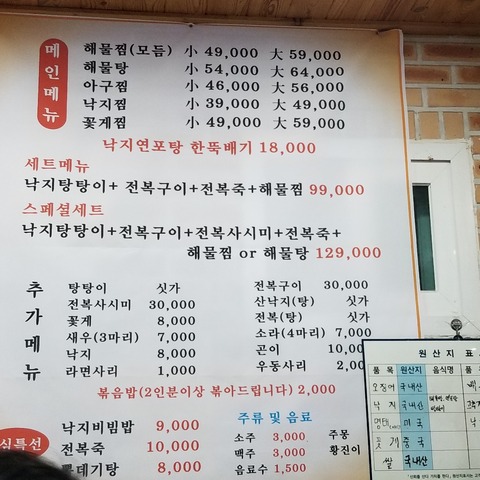 메인메뉴
해물찜(모듬) 小 49,000 大 59,000
해물탕 小 54,000 大 64,000
아구찜 小 46,000 大 56,000
낙지찜 小 39,000 大 49,000
꽃게찜 小 49,000 大 59,000
낙지연포탕 한뚝배기 18,000
세트메뉴
낙지탕탕이+전복구이+전복죽+해물찜 99,000
스페셜세트
낙지탕탕이+전복구이+전복사시미+전복죽+
해물찜 or 해물탕 129,000
추가메뉴
탕탕이 싯가
전복사시미 30,000
꽃게 8,000
새우(3마리) 7,000
낙지 8,000
라면사리 1,000
전복구이 30,000
산낙지(탕) 싯가
전복(탕) 싯가
소라(4마리) 7,000
곤이 10,00
우동사리 2,00
볶음밥(2인분이상 볶아드립니다) 2,000
심특선
낙지비빔밥 9,000
전복죽 10,000
뻘데기탕 8,000
주류 및 음료
소주 3,000
맥주 3,000
음료수 1,500
주몽
황진이
원산지 표
품목 원산지 음식명 품
오징어 국내산
낙지 국내산
명태 미국
꽃게 중국
쌀 국내산